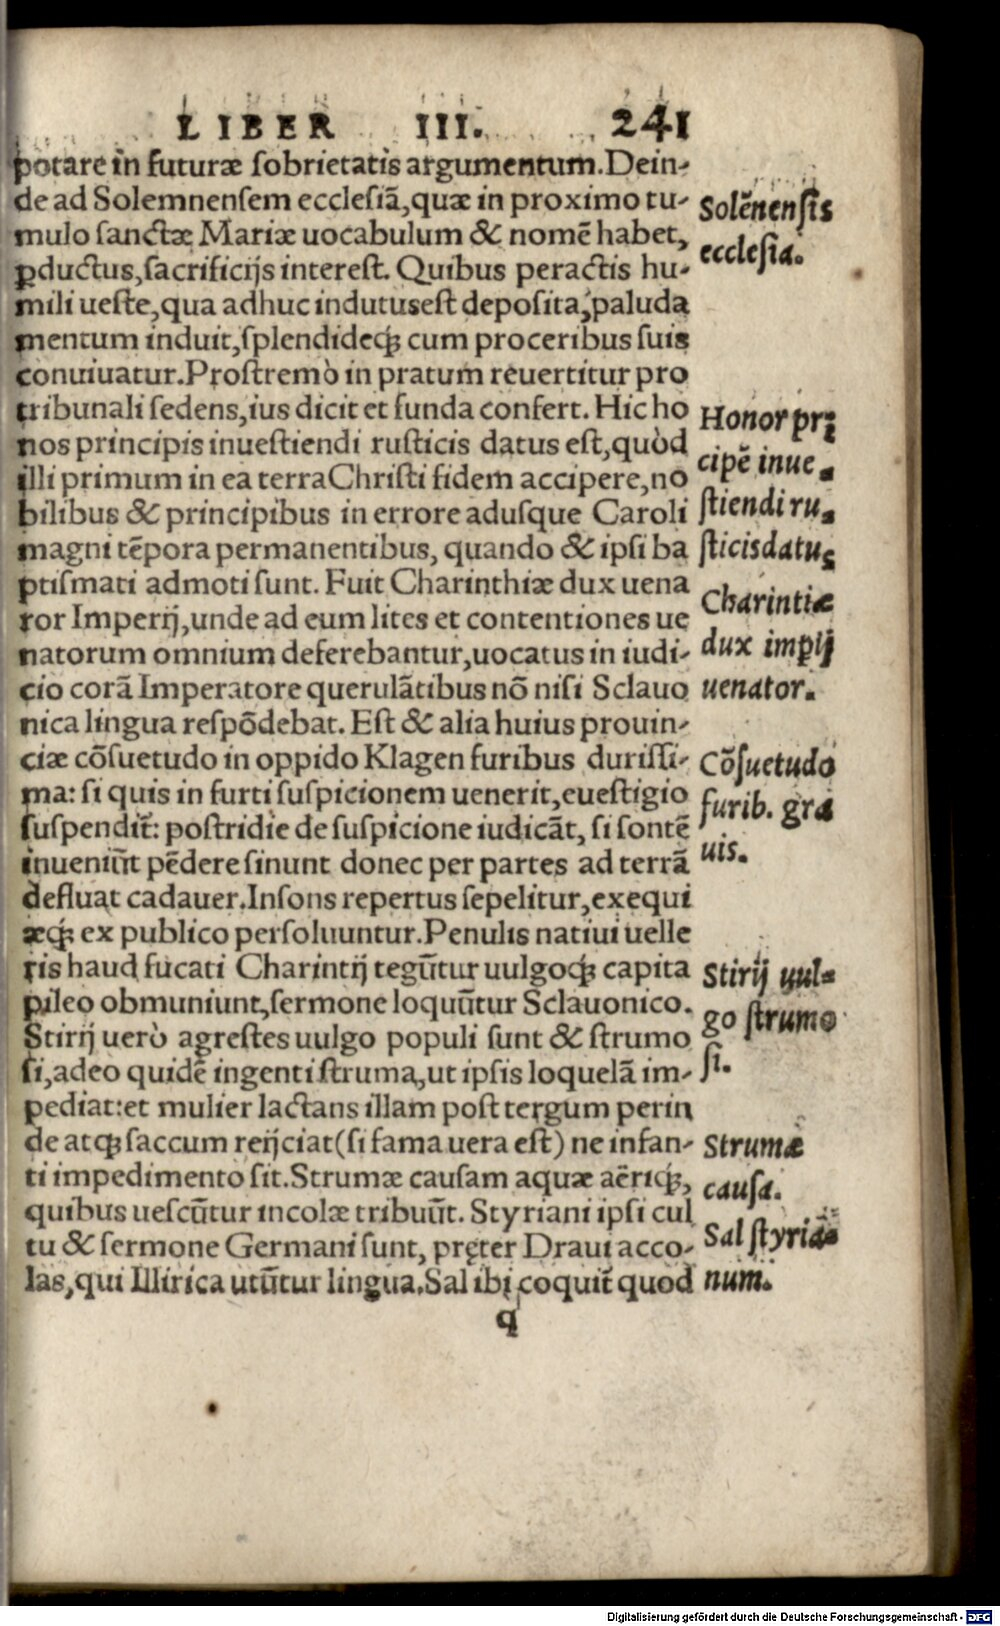 LIBER III. 241
potare in futuræ sobrietatis argumentum. Dein-
de ad Solemnensem ecclesiā, quæ in proximo tu-
mulo sanctæ Mariæ uocabulum & nomē habet,
ꝑductus, sacrificijs interest. Quibus peractis hu-
mili ueste, qua adhuc indutus est deposita, paluda
mentum induit, splendideqꝫ cum proceribus suis
conuiuatur. Prostremò in pratum reuertitur pro
tribunali sedens, ius dicit et funda confert. Hic ho
nos principis inuestiendi rusticis datus est, quòd
illi primum in ea terra Christi fidem accipere, no
bilibus & principibus in errore adusque Caroli
magni tēpora permanentibus, quando & ipsi ba
ptismati admoti sunt. Fuit Charinthiæ dux uena
ror Imperij, unde ad eum lites et contentiones ue
natorum omnium deferebantur, uocatus in iudi-
cio corā Imperatore querulātibus nō nisi Sclauo
nica lingua respōdebat. Est & alia huius prouin-
ciæ cōsuetudo in oppido Klagen furibus durissi-
ma: si quis in furti suspicionem uenerit, euestigio
suspendit̄: postridie de suspicione iudicāt, si sontē
inueniūt pēdere sinunt donec per partes ad terrā
defluat cadauer. Insons repertus sepelitur, exequi
æqꝫ ex publico persoluuntur. Penulis natiui uelle
ris haud fucati Charintij tegūtur uulgoqꝫ capita
pileo obmuniunt, sermone loquūtur Sclauonico.
Stirij uerò agrestes uulgo populi sunt & strumo
si, adeo quidē ingenti struma, ut ipsis loquelā im-
pediat: et mulier lactans illam post tergum perin
de atqꝫ saccum reijciat (si fama uera est) ne infan-
ti impedimento sit. Strumæ causam aquæ aëriqꝫ,
quibus uescūtur incolæ tribuūt. Styriani ipsi cul
tu & sermone Germani sunt, pręter Draui acco-
las, qui Illirica utūtur lingua. Sal ibi coquit̄ quod
q
Solēnensis
ecclesia.
Honor pri
cipē inue-
stiendi ru-
sticis datus
Charintiæ
dux imꝑij
uenator.
Cōsuetudo
furib. gra
uis.
Stirij uul-
go strumo
si.
Strumæ
causa.
Sal styria-
num.
Digitalisierung gefördert durch die Deutsche Forschungsgemeinschaft - DFG